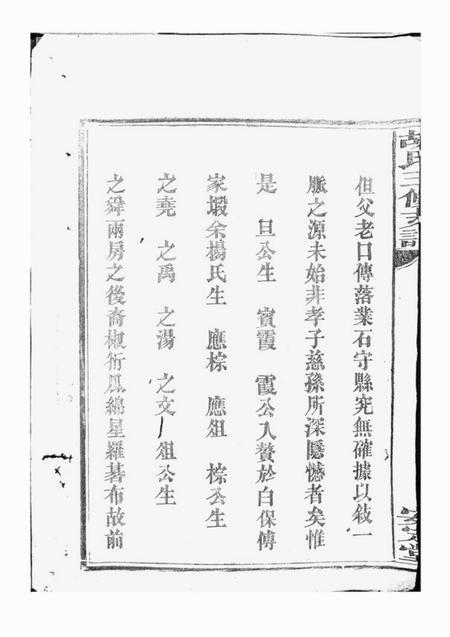 但父老口傳落業石守縣究無確據以敍一
脈之源未始非孝子慈孫所深隱憾者矣惟
是旦公生 賓霞 霞公入贅於白保傅
家塅余楊氏生 應棕 應俎 棕公生
之堯 之禹 之湯 之文 俎公生
之舜兩房之後裔椒衍瓜綿星羅碁布故前
胡氏三修支譜
安定堂